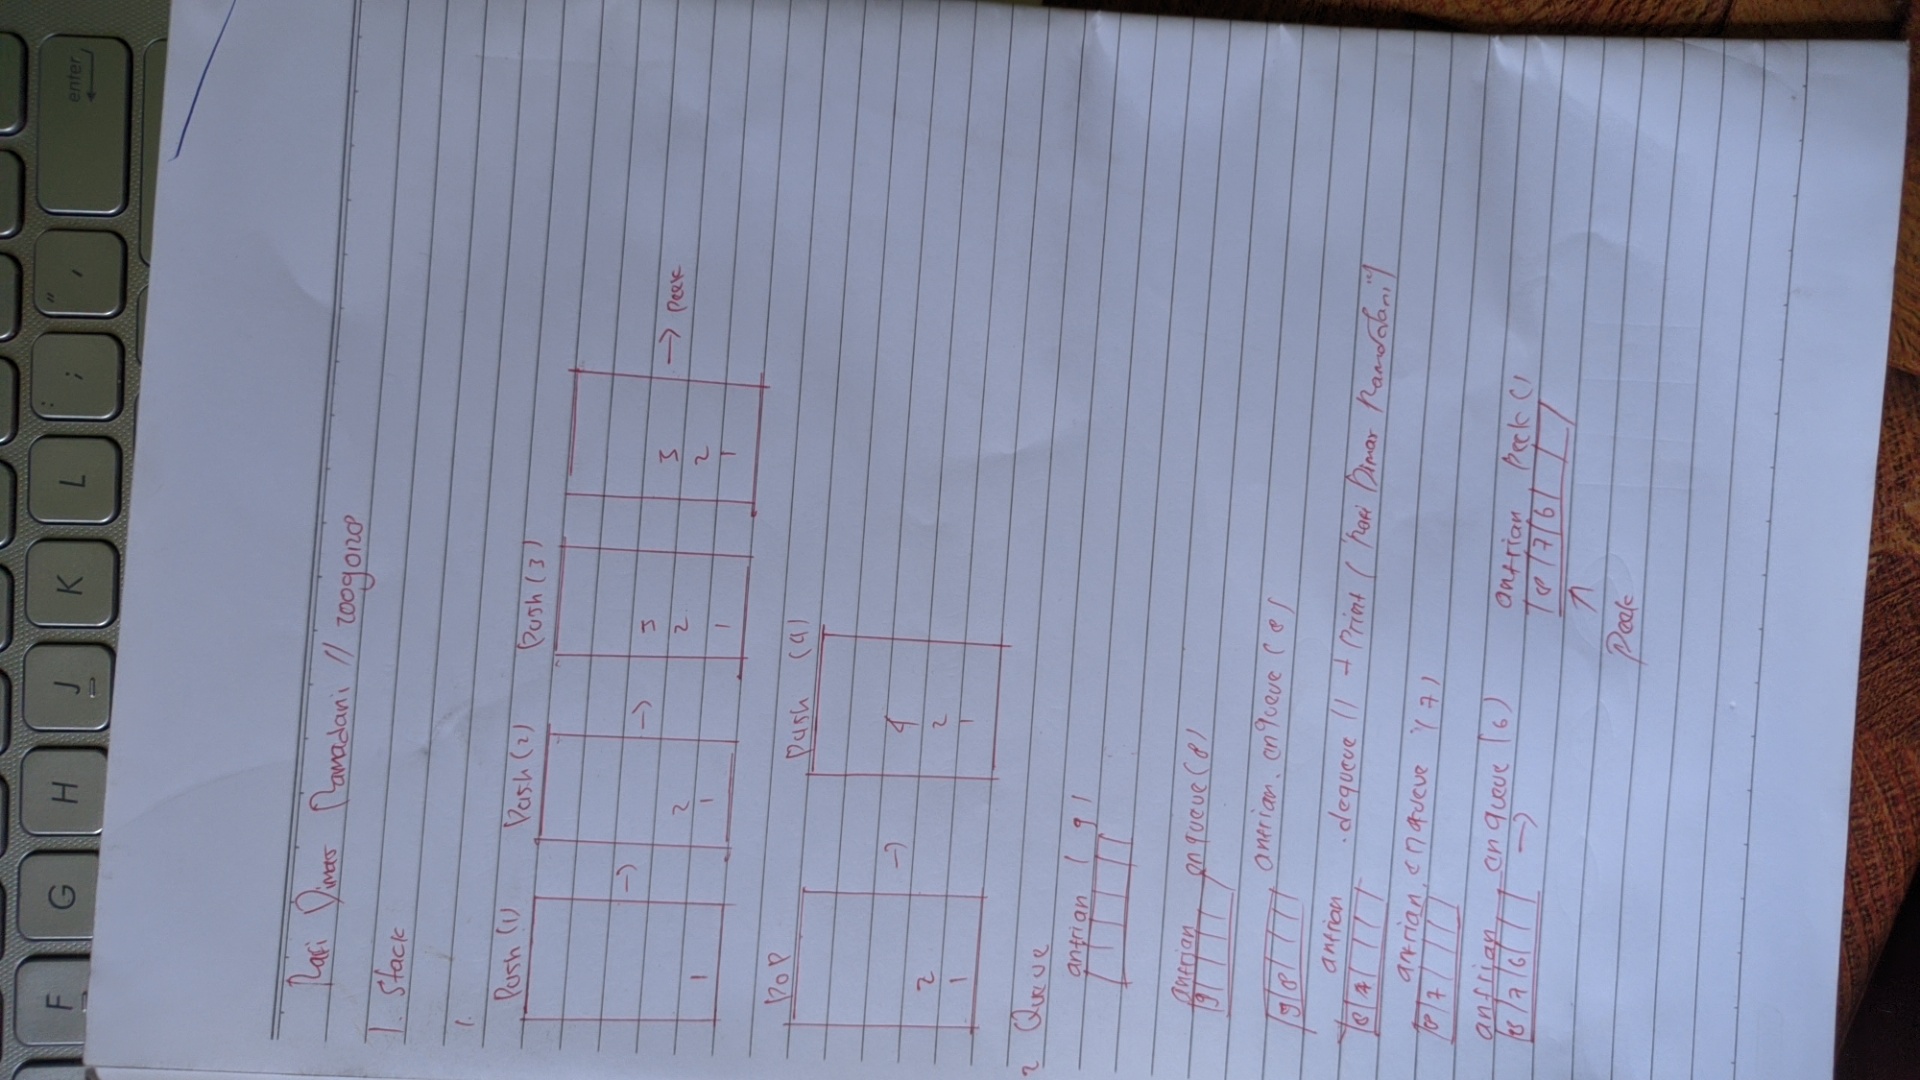 F G H J K L : ; " , enter
Rafi Dimas Ramadani // 20090128
1. Stack
1.
Push (1) Push (2) Push (3)
1 → 2 1 → 3 2 1 3 2 1 → peek
POP Push (4)
2 1 → 4 2 1
2 Queue
antrian ( 9 )
antrian enqueue (8)
9
9 8 antrian. enqueue (8)
antrian .dequeue () + Print ("Rafi Dimas Ramadani")
8 7
antrian. enqueue (7)
8 7
antrian enqueue (6)
8 7 6 →
antrian Peek ()
8 7 6
Peek